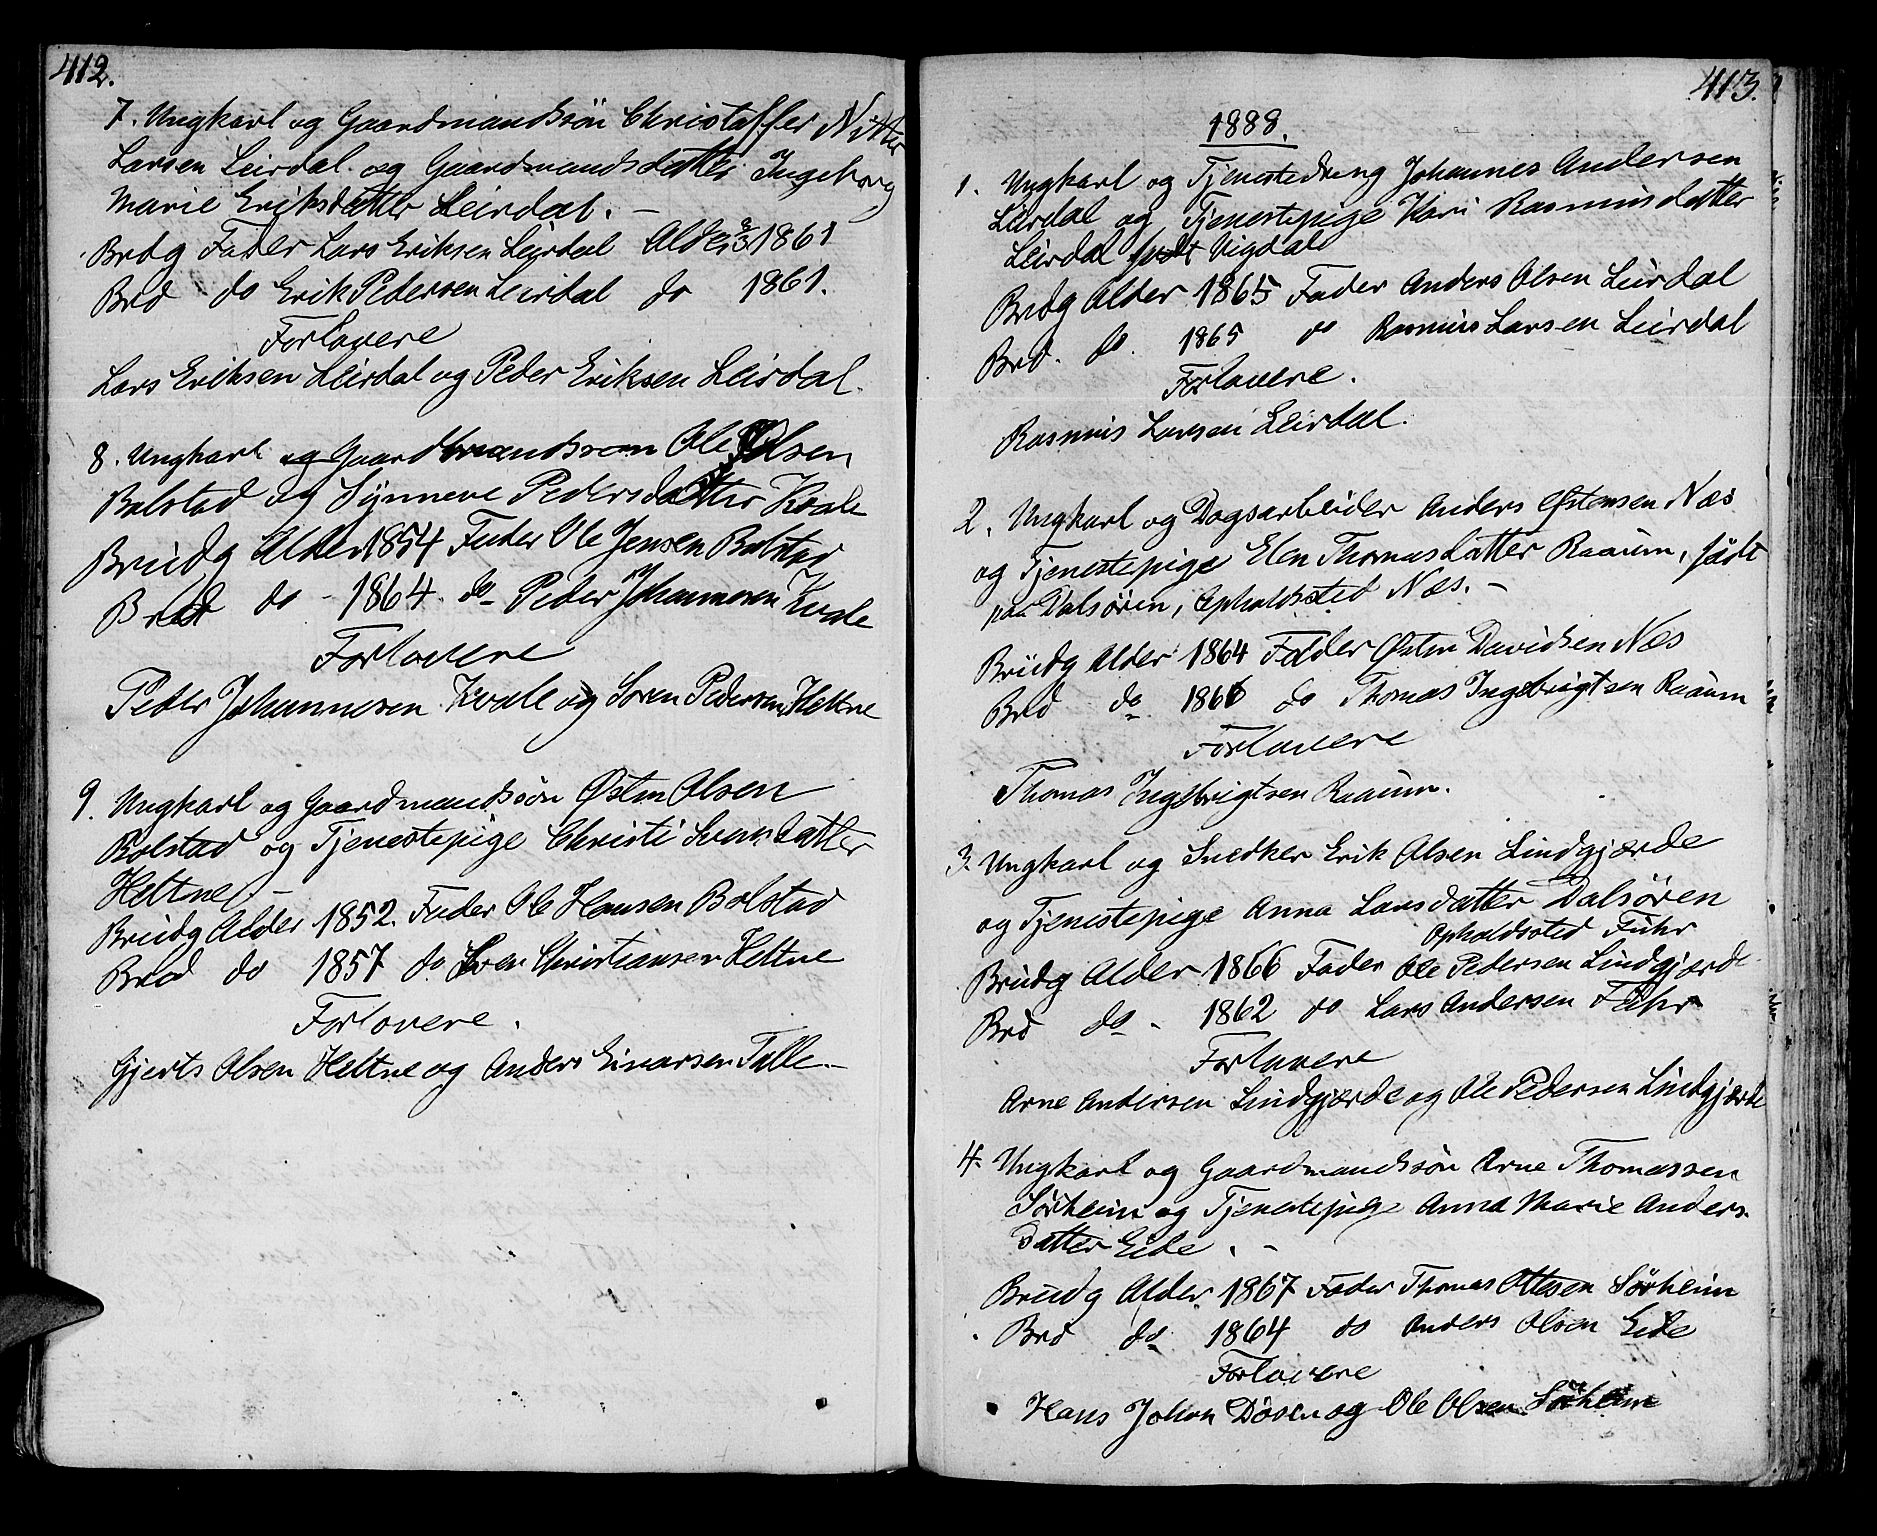 412.
7. Ungkarl og Gaardmandssön Christoffer Nitter
Larsen Leirdal og Gaardmandsdatter Ingeborg
Marie Eriksdatter Leirdal. —
Brdg Fader Lars Eriksen Leirdal Alder 1861
Brd do Erik Pedersen Leirdal do 1861.
Forlovere
Lars Eriksen Leirdal og Peder Eriksen Leirdal.
8. Ungkarl og Gaardmandsson Ole Olsen
Bolstad og Synneve Pedersdatter Kvale
Brudg Alder 1854 Fader Ole Jensen Bolstad
Brd do - 1864. do Peder Johannesen Kvale
Forlovere
Peder Johannesen Kvale og Soren Pedersen Heltne
9. Ungkarl og Gaardmandssön Østen Olsen
Bolstad og Tjenestepige Christi Svensdatter
Heltne. —
Brudg Alder 1852. Fader Ole Hansen Bolstad
Brd do 1857 do Sven Christiansen Heltne
Forlovere.
Gjerts Olsen Heltne og Anders Einarsen Talle. —
413.
1888.
1. Ungkarl og Tjenestedreng Johannes Andersen
Leirdal og Tjenestepige Kari Rasmusdatter
Leirdal født Vigdal
Brdg Alder 1865 Fader Anders Olsen Leirdal
Brd. do. 1865 do Rasmus Larsen Leirdal
Forlovere.
Rasmus Larsen Leirdal.
2. Ungkarl og Dagsarbeider Anders Østensen Næs
og Tjenestepige Elen Thomasdatter Raaum, født
paa Dalsøren, Opholdssted Næs. —
Brudg Alder 1864 Fader Østen Davidsen Næs
Brd do 1866 do Thomas Ingebrigtsen Raaum
Forlovere
Thomas Ingebrigtsen Raaum.
3. Ungkarl og Snedker Erik Olsen Lindgjærde
og Tjenestepige Anna Larsdatter Dalsören
Opholdssted Fuhr
Brudg Alder 1866 Fader Ole Pedersen Lindgjærde
Brd do - 1862 do Lars Andersen Fuhr
Forlovere
Arne Andersen Lindgjærde og Ole Pedersen Lindgjærde
4. Ungkarl og Gaardmandssön Arne Thomassen
Sörheim og Tjenestepige Anna Marie Anders-
datter Eide. —
Brudg Alder 1867 Fader Thomas Ottesen Sörheim
Brd do 1864 do Anders Olsen Eide
Forlovere
Hans Johan Døsen og Ole Olsen Sörheim